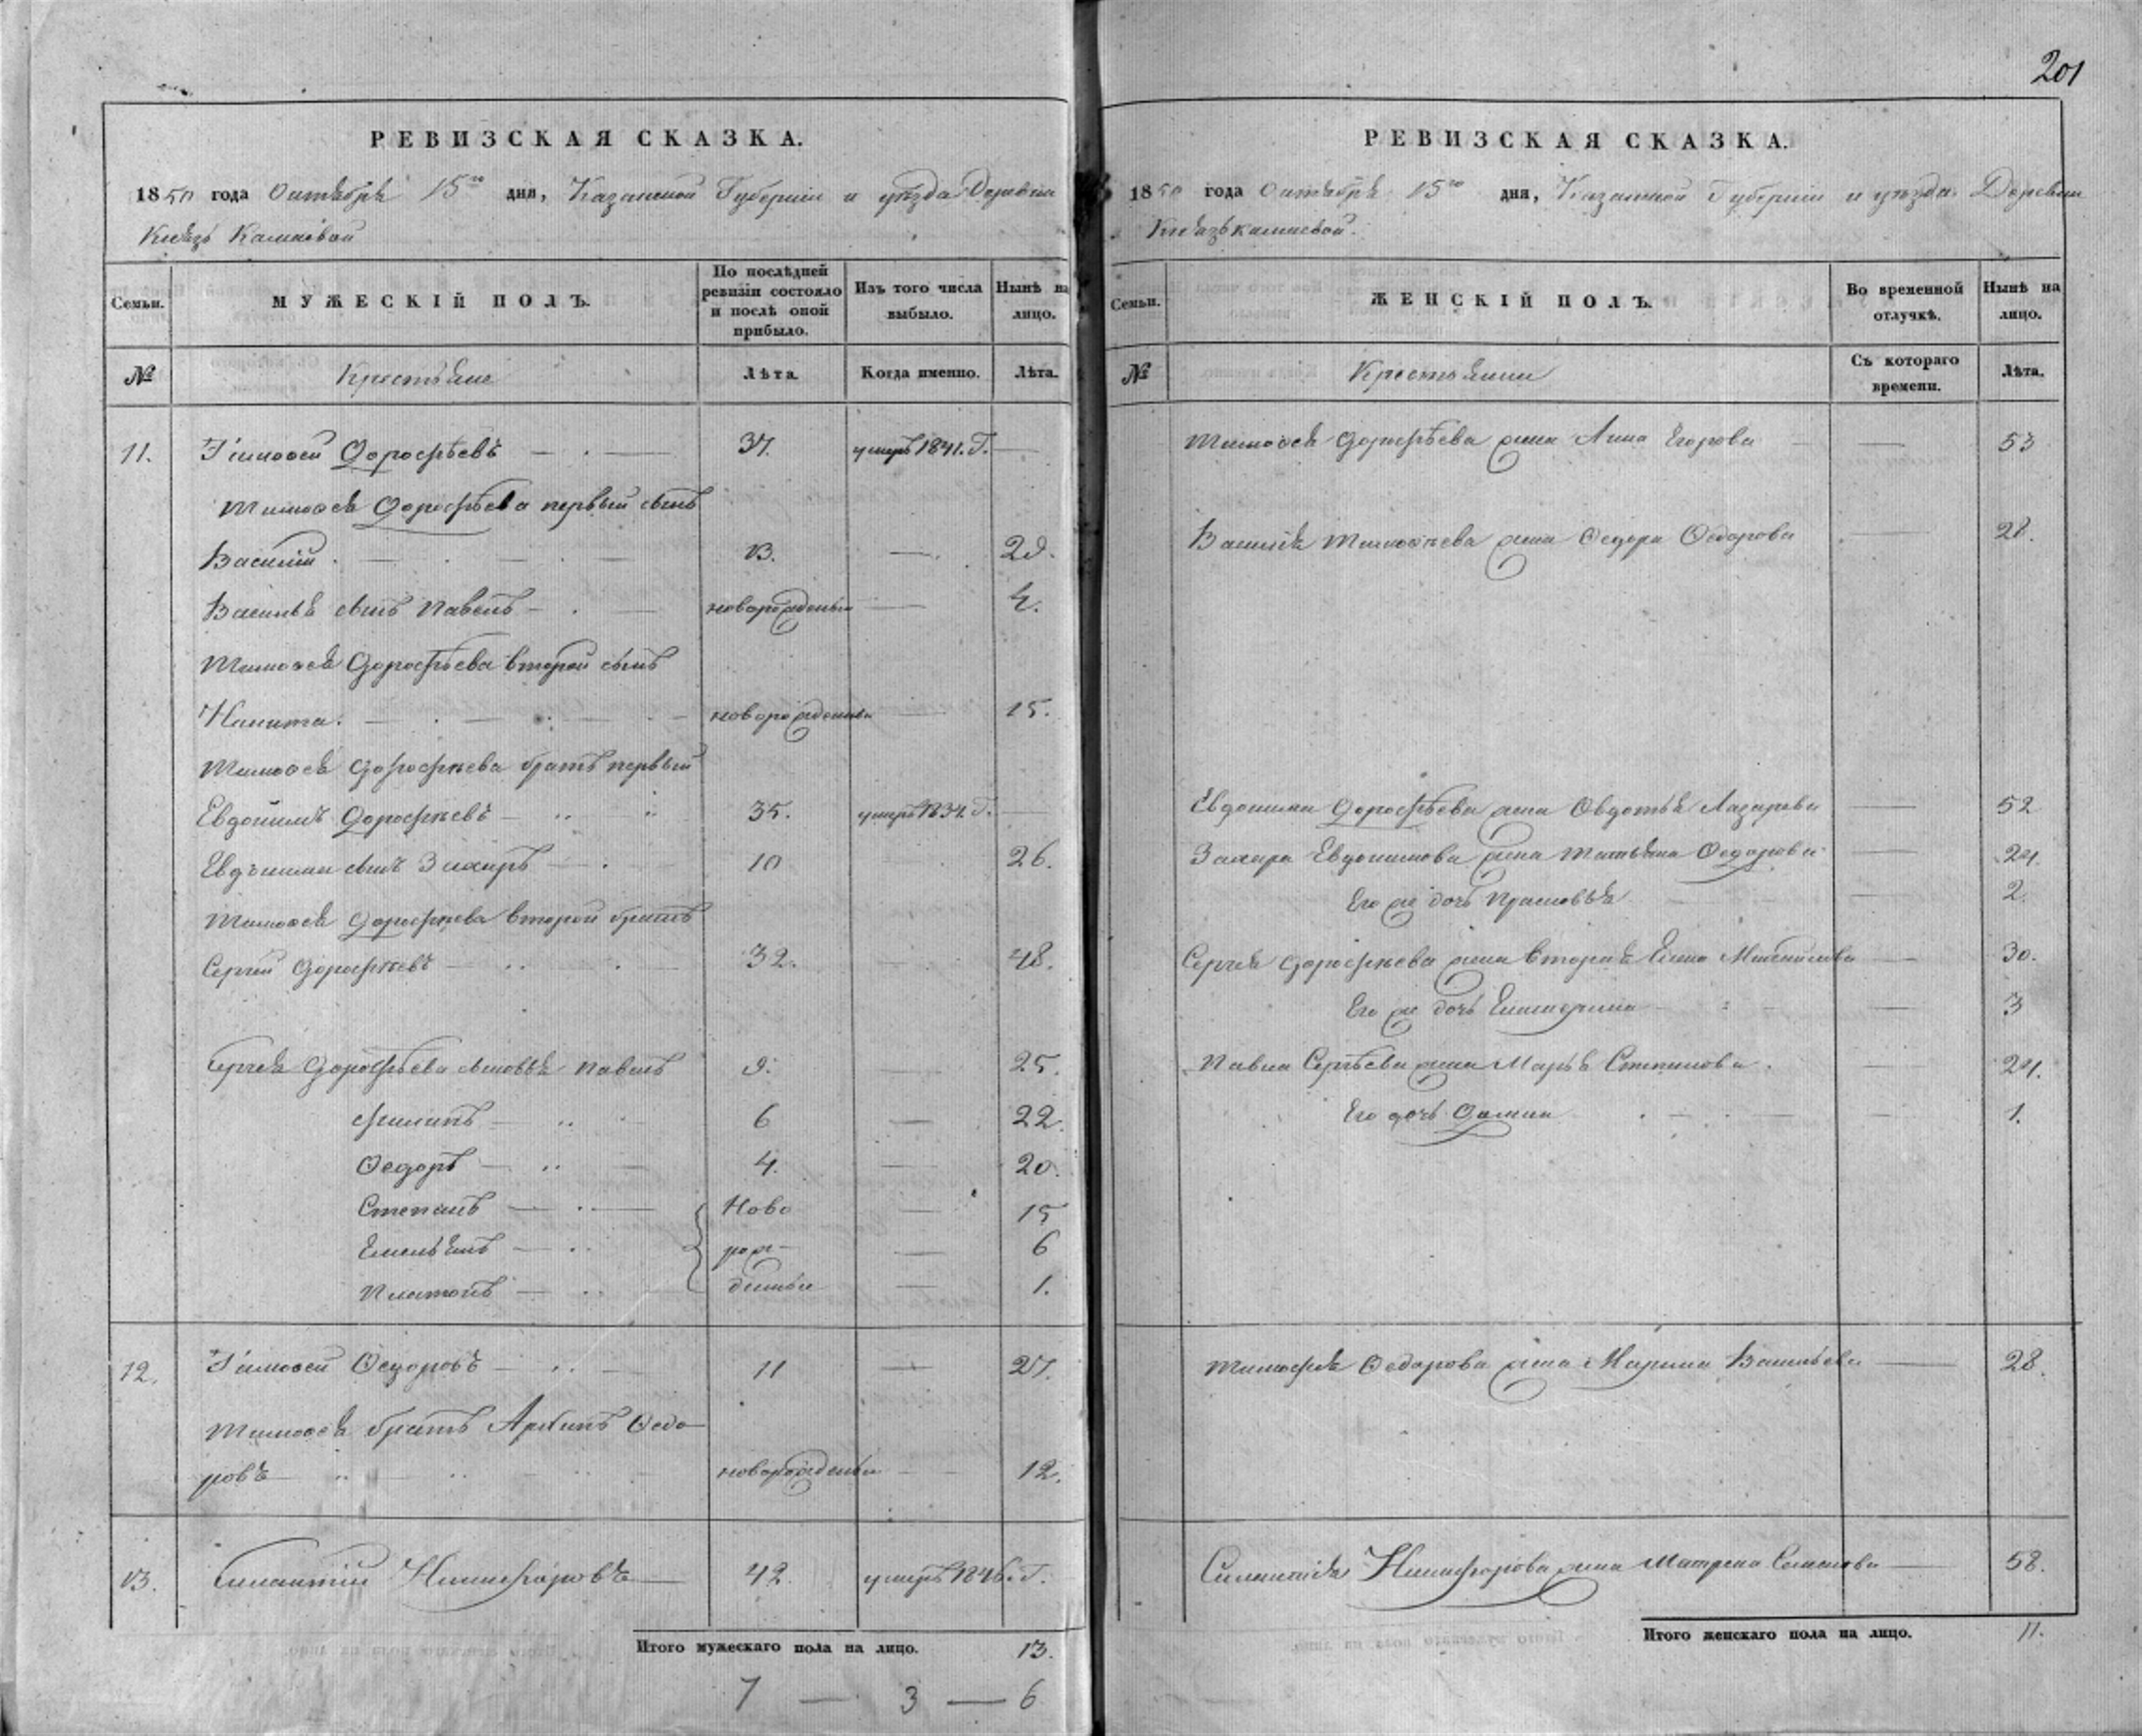 201
РЕВИЗСКАЯ СКАЗКА.
1850 года Октября 15го дня, Казанской Губернии и уѣзда Деревни
Князь Камаевой
Семьи.
МУЖЕСКІЙ ПОЛЪ.
По послѣдней ревизіи состояло и послѣ оной прибыло.
Изъ того числа выбыло.
Нынѣ на лицо.
№
Крестьяне
Лѣта.
Когда именно.
Лѣта.
11. Тимоѳей Дорофѣевъ 37. умеръ 1841. Г.
Тимоѳея Дорофѣева первый сынъ
Василій. 13. 29.
Василья сынъ Павелъ новорожденый 4.
Тимоѳея Дорофѣева второй сынъ
Никита. новорожденый 15.
Тимоѳея Дорофѣева братъ первый
Евдокимъ Дорофѣевъ 35. умеръ 1834. Г.
Евдокима сынъ Захаръ 10 26.
Тимоѳея Дорофѣева второй братъ
Сергѣй Дорофѣевъ 32. 48.
Сергѣя Дорофѣева сыновья Павелъ 9. 25.
Филипъ 6 22.
Ѳедоръ 4. 20.
Степанъ Ново 15
Емельянъ рож- 6
Платонъ деные 1.
12. Тимоѳей Ѳедоровъ 11 27.
Тимоѳея братъ Архипъ Ѳедо-
ровъ новорожденый 12.
13. Силантій Никифоровъ 42. умеръ 1846. Г.
Итого мужескаго пола на лицо. 13.
7 — 3 — 6
РЕВИЗСКАЯ СКАЗКА.
1850 года Октября 15го дня, Казанской Губерніи и уѣзда Деревни
Князькамаевой.
Семьи.
ЖЕНСКІЙ ПОЛЪ.
Во временной отлучкѣ.
Нынѣ на лицо.
№
Крестьянки
Съ котораго времени.
Лѣта.
Тимоѳея Дорофѣева жена Анна Егорова 53
Василья Тимоѳѣева жена Ѳедора Ѳедорова 28.
Евдокима Дорофѣева жена Овдотья Лазарева 52
Захара Евдокимова жена Татьяна Ѳедорова 24.
Его же дочь Прасковья 2.
Сергѣя Дорофѣева жена вторая Елена Михайлова 30.
Его же дочь Екатерина 3
Павла Сергѣева жена Марья Степанова. 24.
Его дочь 1.
Тимофея Ѳедорова жена Марина Васильева 28.
Силантія Никифорова жена Матрена Семенова 58.
Итого женскаго пола на лицо. 11.